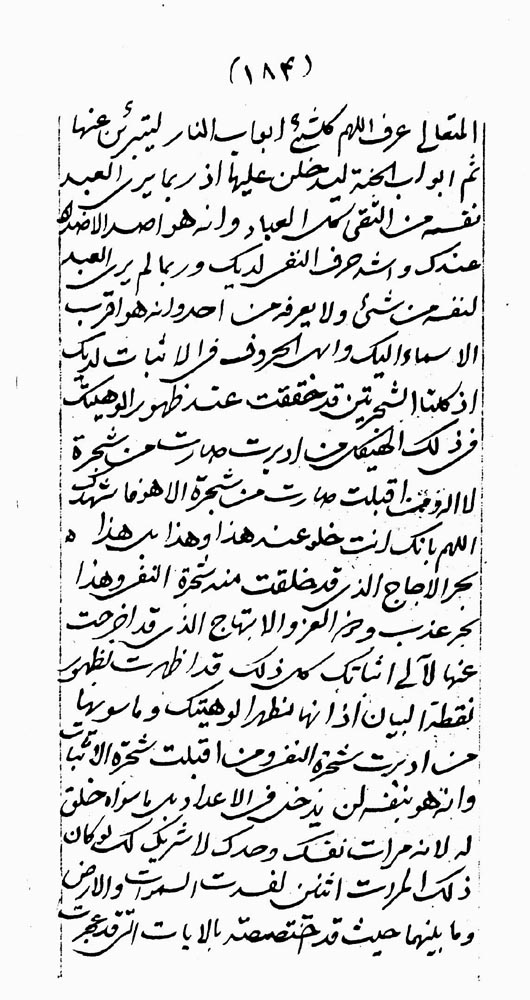 (١٨۴)
المتعالي عرف اللهم كلشئ ابواب النار ليتبرئن عنها
ثم ابواب الجنة ليدخلن عليها اذ ربما يرى العبد
نفسه من اتقى كل العباد وانه هو اصد الاضداد
عندك واشد حرف النفى لديك وربما لم يرى العبد
لنفسه من شئ ولا يعرفه من احد وانه هو اقرب
الاسماء اليك وابهى الحروف فى الاثبات لديك
اذ كلتا الشجرتين قد تحققت عند ظهور الوهيتك
فى ذلك الهيكل من ادبرت صارت من شجرة
لا اله ومن اقبلت صارت من شجرة الا هو فاشهدك
اللهم بانك انت خلو عند هذا وهذا بل هذا
بحر الاجاج الذى قد خلقت منه شجرة النفى وهذا
بحر عذب والعز والابتهاج الذى قد اخرجت
عنها لآلي اثباتك كل ذلك قد اظهرت بظهور
نقطة البيان اذ انها مظهر الوهيتك وما سويها
من ادبرت شجرة النفى ومن اقبلت شجرة الاثبات
وانه هو بنفسه لن يدخل فى الاعداد بل ما سواه خلق
له لانه مرات نفسك وحدك لا شريك لك لو كان
ذلك المرات اثنين لفسدت السموات والارض
وما بينهما حيث قد اختصصته بالايات التى قد عجزت